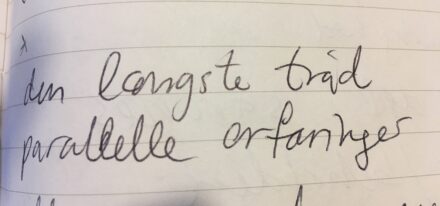 den længste tråd
parallelle erfaringer